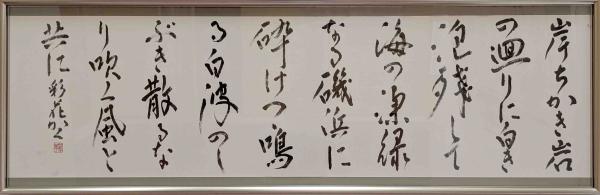 岸ちかき岩
の廻りに白き
泡残して
海の深緑
なる磯浜に
砕けつ鳴
る白波のし
ぶき散るな
り吹く風と
共に 彩花かく